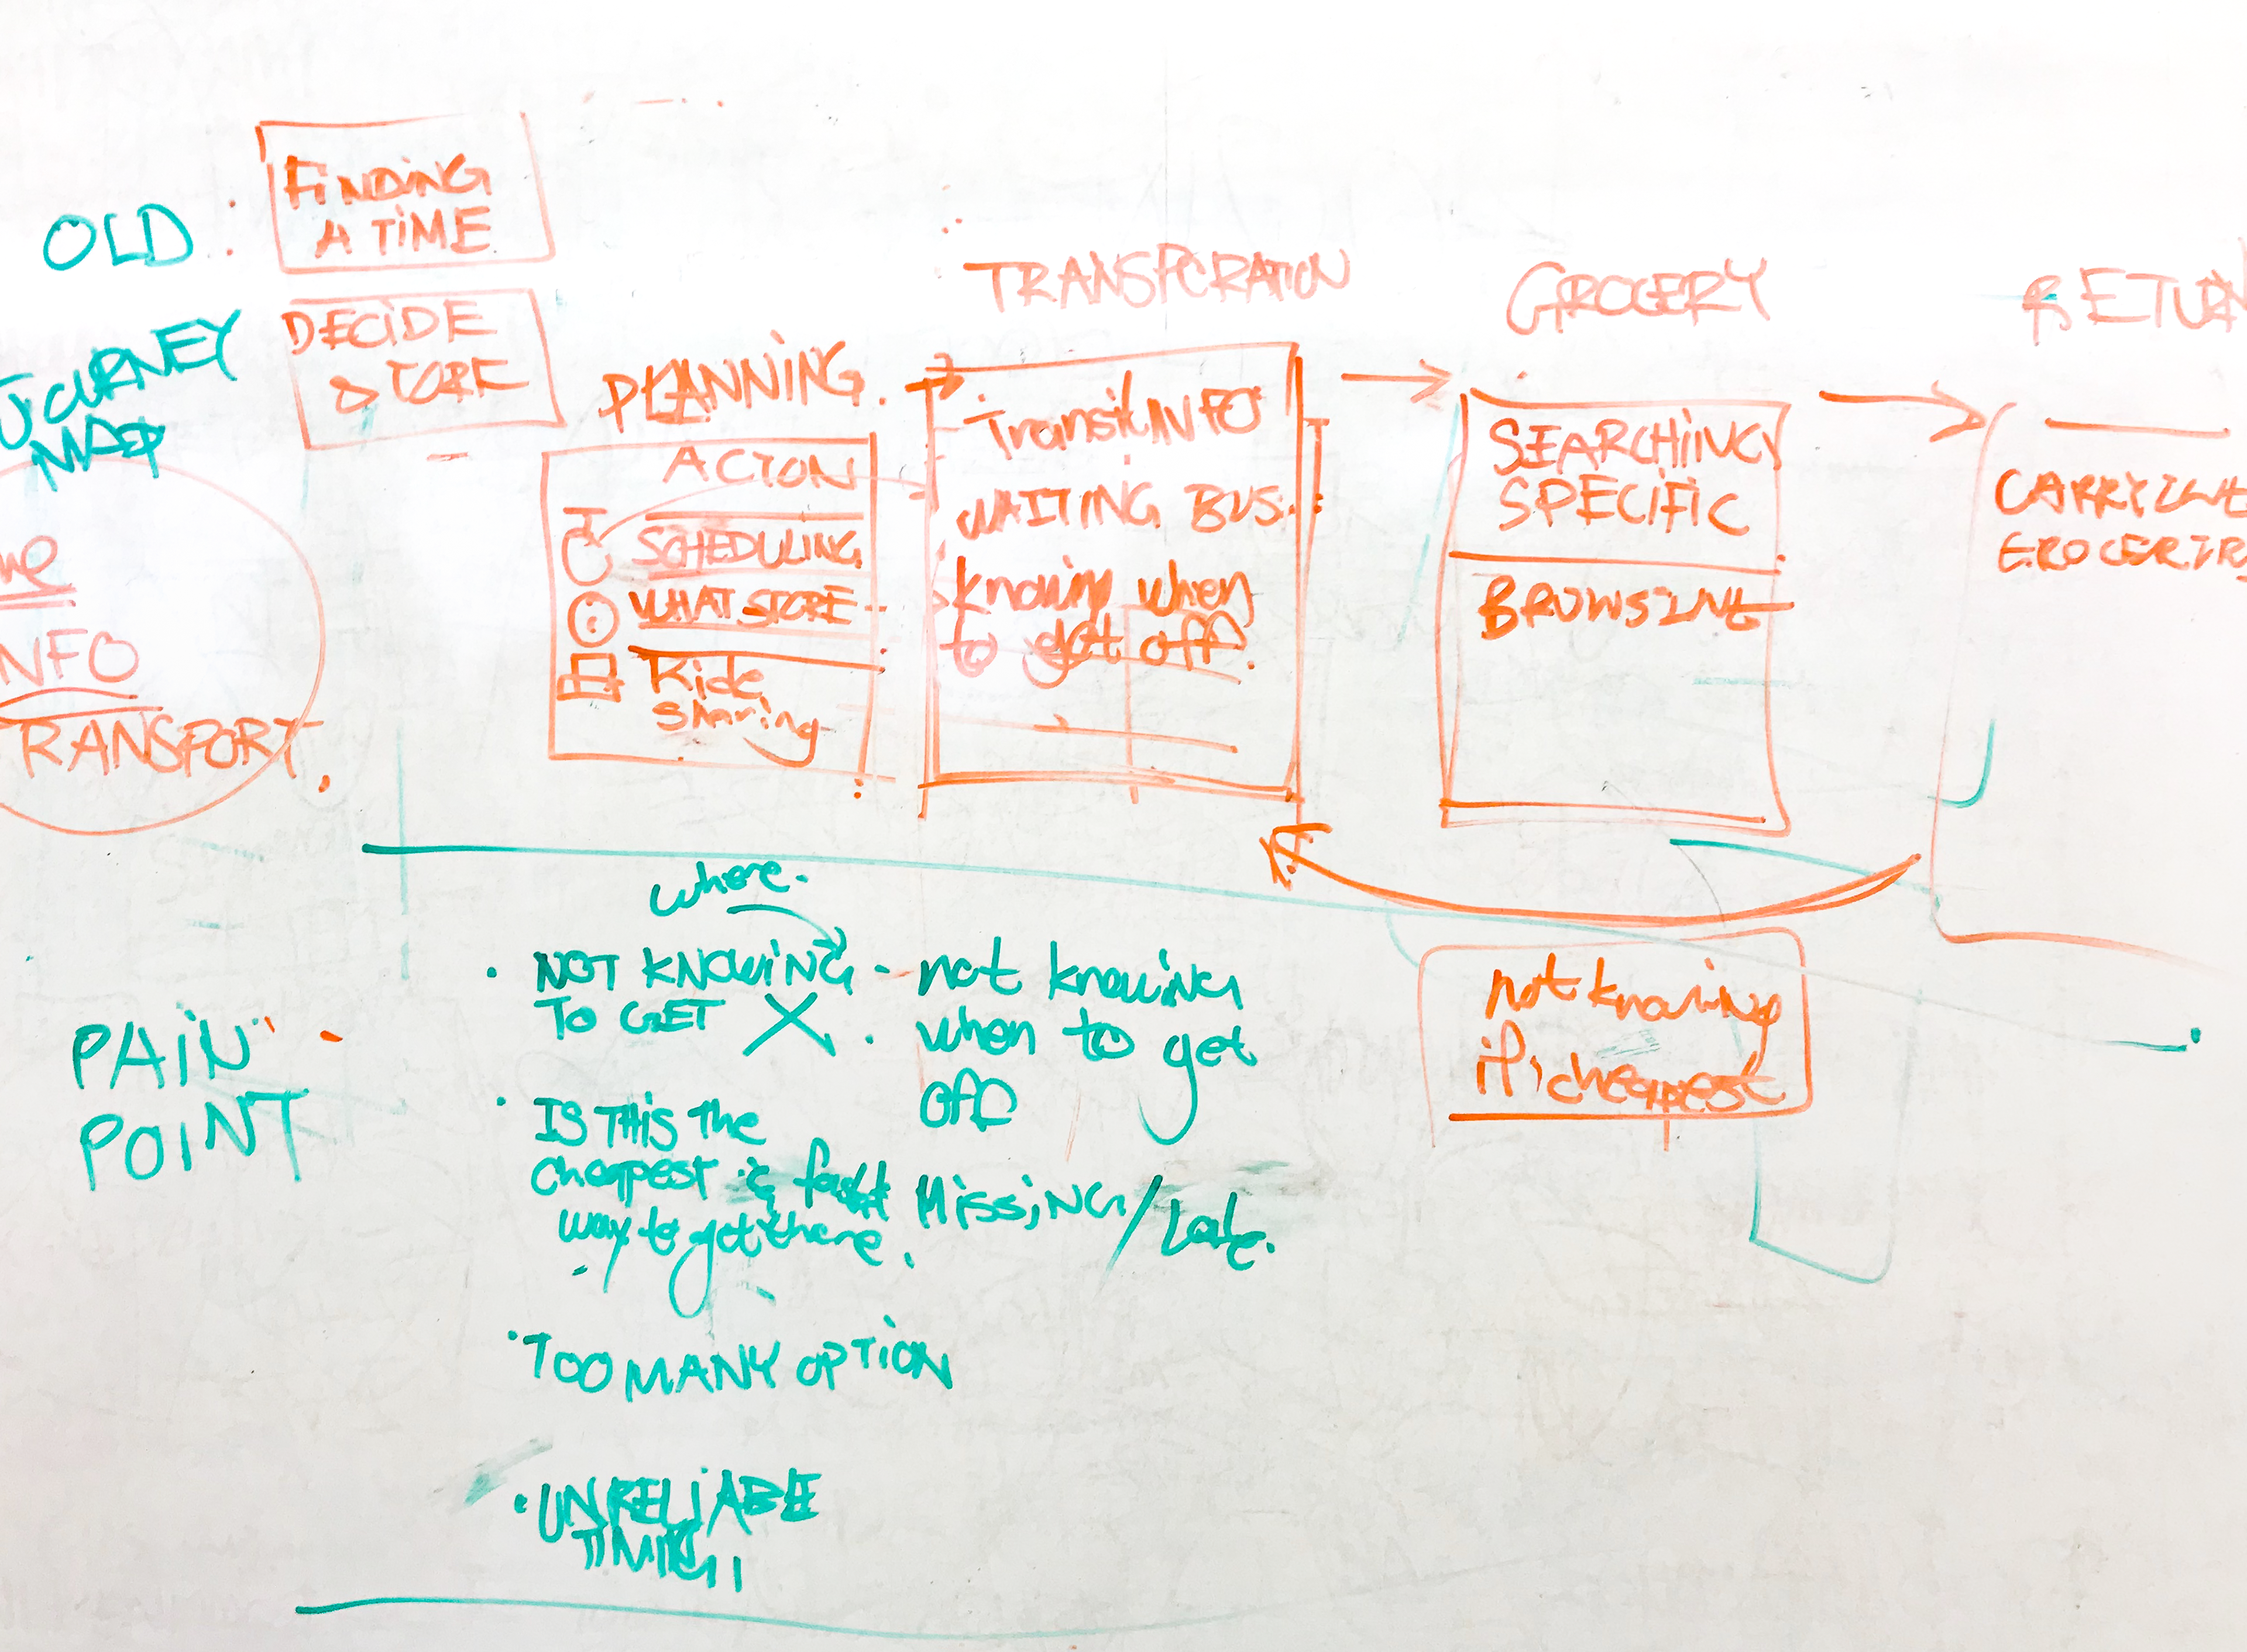 OLD
JOURNEY
MAP
FINDING
A TIME
DECIDE
STORE
NFO
TRANSPORT
PLANNING
ACTON
SCHEDULING
WHAT STORE
Ride
sharing
TRANSPORATION
Transit INFO
WAITING BUS
knowing when
to get off.
GROCERY
SEARCHING
SPECIFIC
BROWSING
RETURN
CARRYING
GROCERIES
PAIN
POINT
where
NOT KNOWING
TO GET X
IS THIS The
cheapest & fast
way to get there
TOO MANY OPTION
UNRELIABLE
TIMING
not knowing
when to get
off
Missing/Late.
not knowing
if cheapest